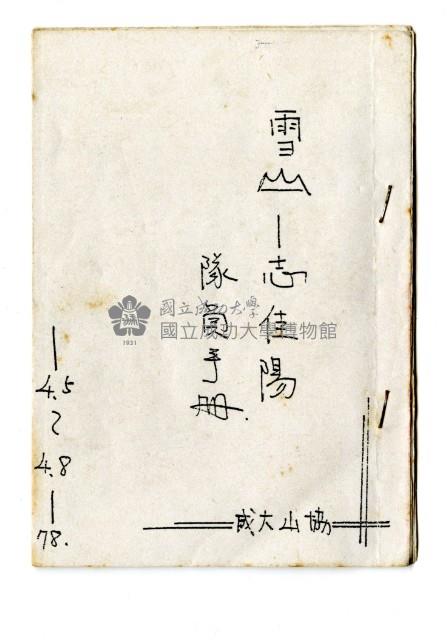 雪山－志佳陽
隊員手冊.
－4.5～4.8－78.
成大山協
國立成功大學
國立成功大學博物館
1931